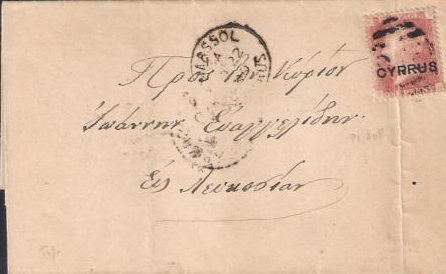 CYPRUS
Προς τον Κύριον
Ἰωάννην Εὐαγγελίδην.
Εἰς Λευκωσίαν
Pl. 208